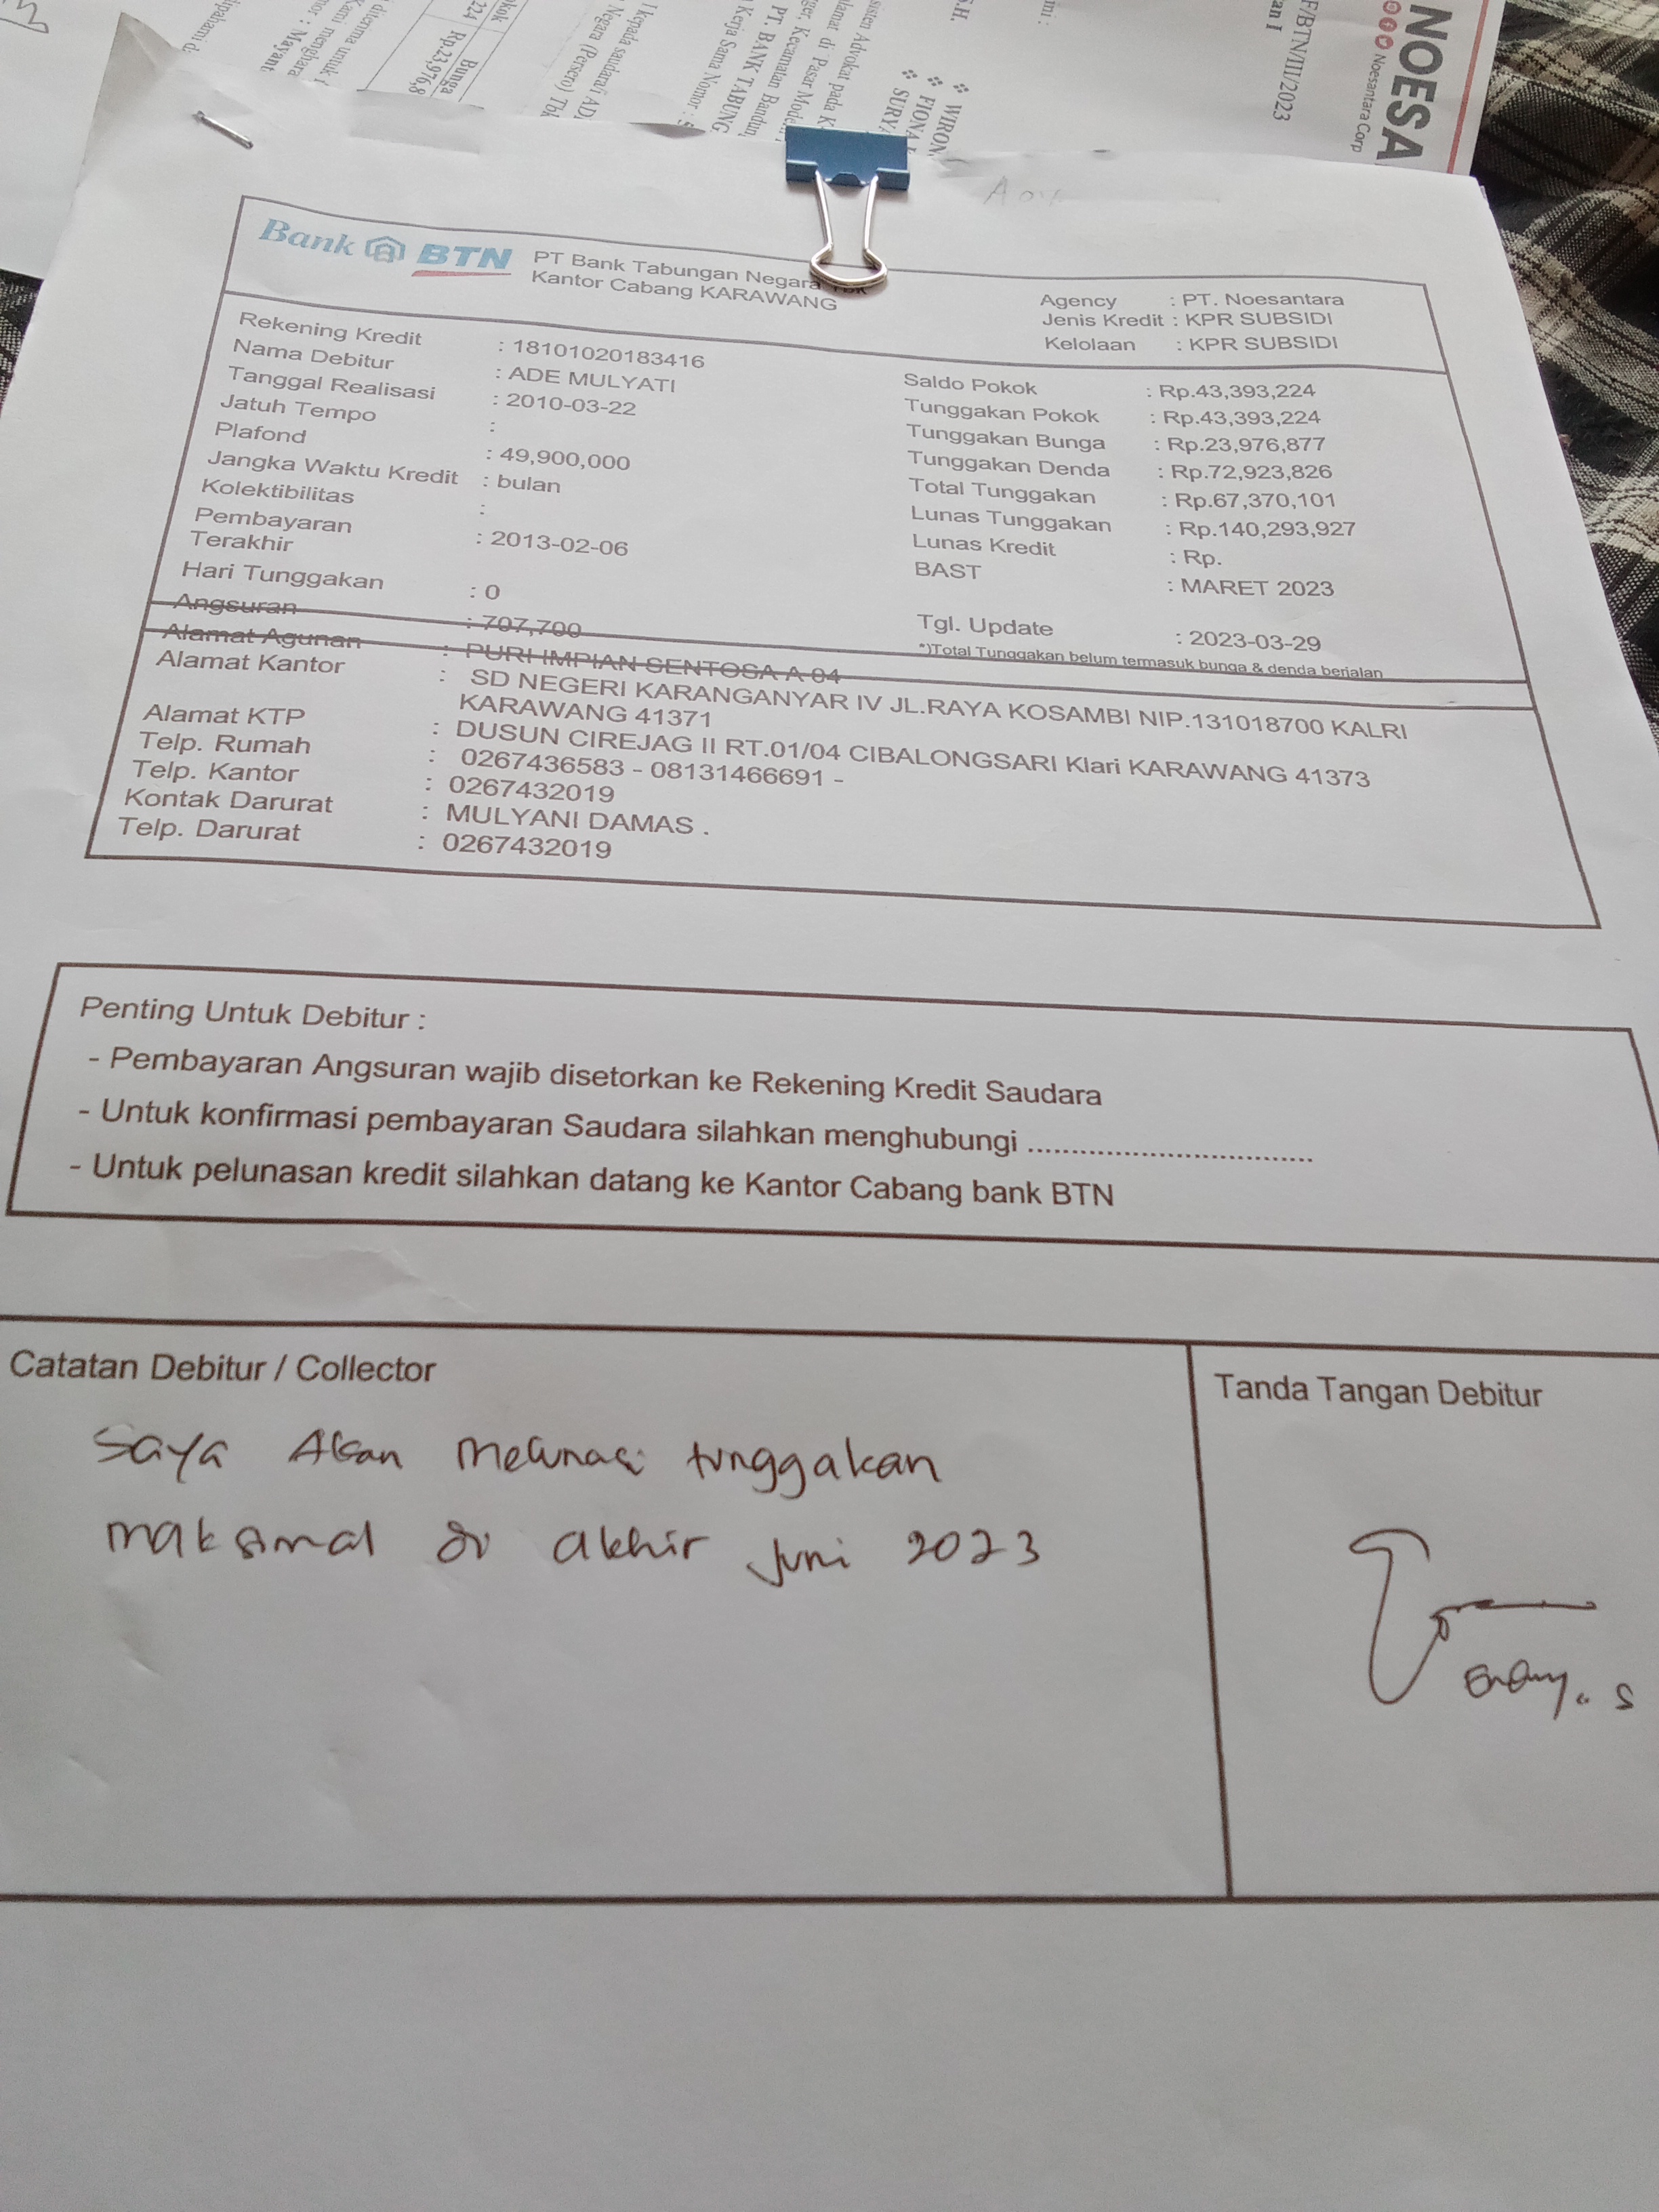 NOESA
Noesantara Corp
F/BTN/III/2023
an I
WIRON
FIONA
SURY
S.H.
sisten Advokat pada K
lamat di Pasar Mode
ger, Kecamatan Bandun
PT. BANK TABUNG
Kerja Sama Nomor : S
l kepada saudara/i AD
Negara (Persero) Tbk
Bunga
Rp.23,976,8
224
Bank BTN
PT Bank Tabungan Negara Tbk
Kantor Cabang KARAWANG
Agency : PT. Noesantara
Jenis Kredit : KPR SUBSIDI
Kelolaan : KPR SUBSIDI
Rekening Kredit : 18101020183416
Nama Debitur : ADE MULYATI
Tanggal Realisasi : 2010-03-22
Jatuh Tempo :
Plafond : 49,900,000
Jangka Waktu Kredit : bulan
Kolektibilitas :
Pembayaran
Terakhir : 2013-02-06
Hari Tunggakan : 0
Angsuran : 707,700
Saldo Pokok : Rp.43,393,224
Tunggakan Pokok : Rp.43,393,224
Tunggakan Bunga : Rp.23,976,877
Tunggakan Denda : Rp.72,923,826
Total Tunggakan : Rp.67,370,101
Lunas Tunggakan : Rp.140,293,927
Lunas Kredit : Rp.
BAST : MARET 2023
Tgl. Update : 2023-03-29
*)Total Tunggakan belum termasuk bunga & denda berjalan
Alamat Agunan : PURI IMPIAN SENTOSA A 04
Alamat Kantor : SD NEGERI KARANGANYAR IV JL.RAYA KOSAMBI NIP.131018700 KALRI
KARAWANG 41371
Alamat KTP : DUSUN CIREJAG II RT.01/04 CIBALONGSARI Klari KARAWANG 41373
Telp. Rumah : 0267436583 - 08131466691 -
Telp. Kantor : 0267432019
Kontak Darurat : MULYANI DAMAS .
Telp. Darurat : 0267432019
Penting Untuk Debitur :
- Pembayaran Angsuran wajib disetorkan ke Rekening Kredit Saudara
- Untuk konfirmasi pembayaran Saudara silahkan menghubungi ................................
- Untuk pelunasan kredit silahkan datang ke Kantor Cabang bank BTN
Catatan Debitur / Collector
Saya Akan Melunasi tunggakan
maksimal di akhir Juni 2023
Tanda Tangan Debitur